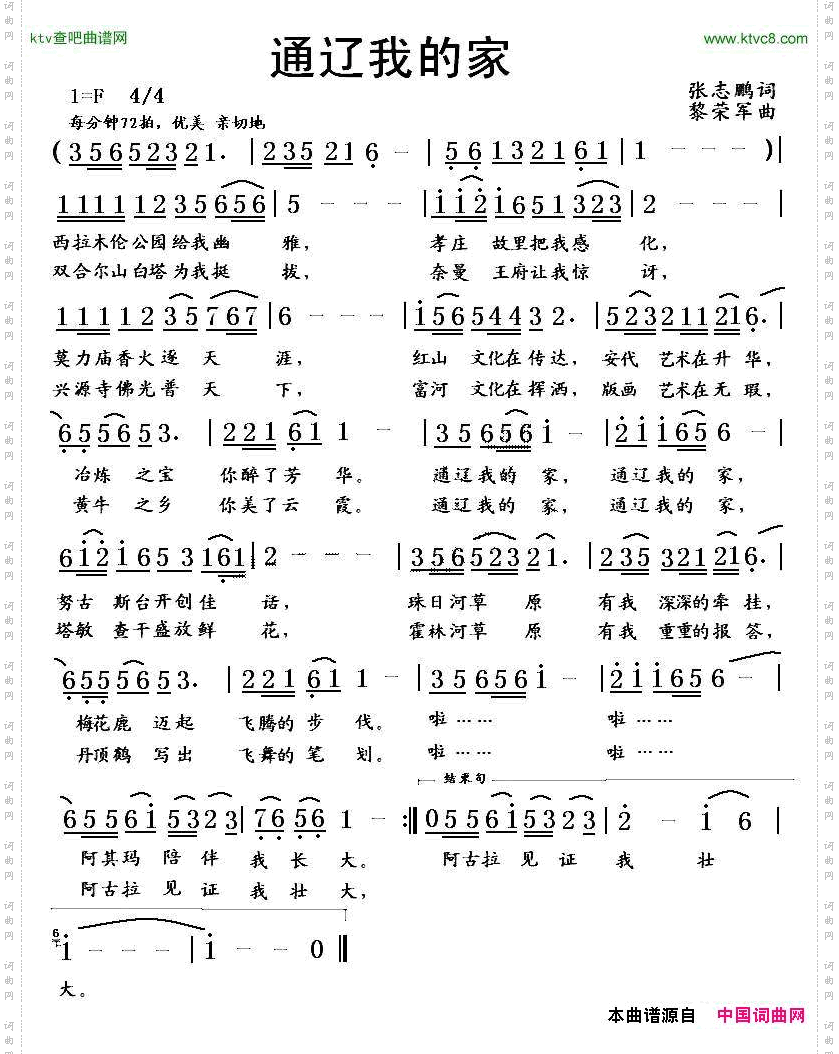 ktv查吧曲谱网
www.ktvc8.com
通辽我的家
1=F 4/4
张志鹏词
每分钟72拍，优美 亲切地
黎荣军曲
( 3 5 6 5 2 3 2 1. | 2 3 5 2 1 6 - | 5 6 1 3 2 1 6 1 | 1 - - - ) |
1 1 1 1 1 2 3 5 6 5 6 | 5 - - - | 1 1 2 1 6 5 1 3 2 3 | 2 - - - |
西拉木伦公园给我幽 雅， 孝庄 故里把我感 化，
双合尔山白塔为我挺 拔， 奈曼 王府让我惊 讶，
1 1 1 1 2 3 5 7 6 7 | 6 - - - | 1 5 6 5 4 4 3 2. | 5 2 3 2 1 1 2 1 6. |
莫力庙香火逐 天 涯， 红山 文化在传达，安代 艺术在升华，
兴源寺佛光普 天 下， 富河 文化在挥洒，版画 艺术在无瑕，
6 5 5 6 5 3. | 2 2 1 6 1 1 - | 3 5 6 5 6 1 - | 2 1 1 6 5 6 - |
冶炼 之宝 你醉了芳 华。 通辽我的 家， 通辽我的 家，
黄牛 之乡 你美了云 霞。 通辽我的 家， 通辽我的 家，
6 1 2 1 6 5 3 1 6 1 | 2 - - - | 3 5 6 5 2 3 2 1. | 2 3 5 3 2 1 2 1 6. |
努古 斯台开创佳 话， 珠日河草 原 有我 深深的牵挂，
塔敏 查干盛放鲜 花， 霍林河草 原 有我 重重的报答，
6 5 5 5 6 5 3. | 2 2 1 6 1 1 - | 3 5 6 5 6 1 - | 2 1 1 6 5 6 - |
梅花鹿 迈起 飞腾的 步 伐。 啦 …… 啦 ……
丹顶鹤 写出 飞舞的 笔 划。 啦 …… 啦 ……
结束句
6 5 5 6 1 5 3 2 3 | 7 6 5 6 1 - :‖ 0 5 5 6 1 5 3 2 3 | 2 - 1 6 |
阿其玛 陪 伴 我 长 大。 阿古拉 见 证 我 壮
阿古拉 见 证 我 壮 大，
6 1 - - - | 1 - - 0 ‖
大。
本曲谱源自 中国词曲网